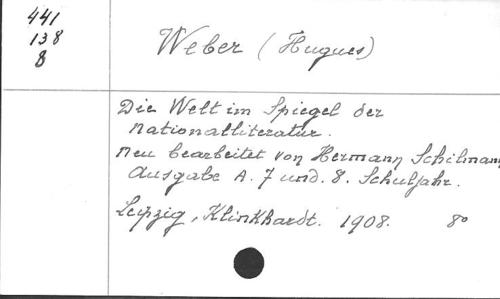 441
138
8
Weber (Hugues)
Die Welt im Spiegel der
Nationalliteratur.
Neu bearbeitet von Hermann Schilmann
Ausgabe A. 7 und. 8. Schuljahr.
Leipzig, Klinkhardt. 1908. 8º